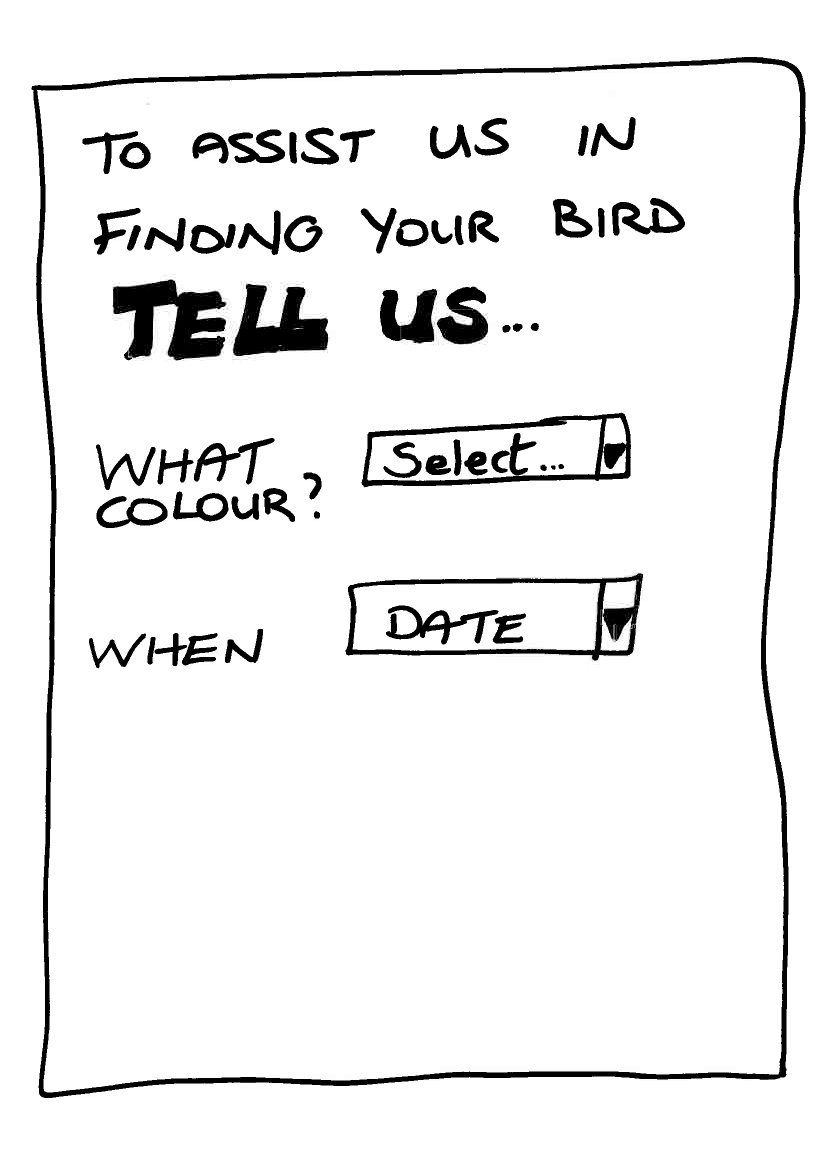 TO ASSIST US IN
FINDING YOUR BIRD
TELL US...
WHAT
COLOUR?
Select...
WHEN
DATE